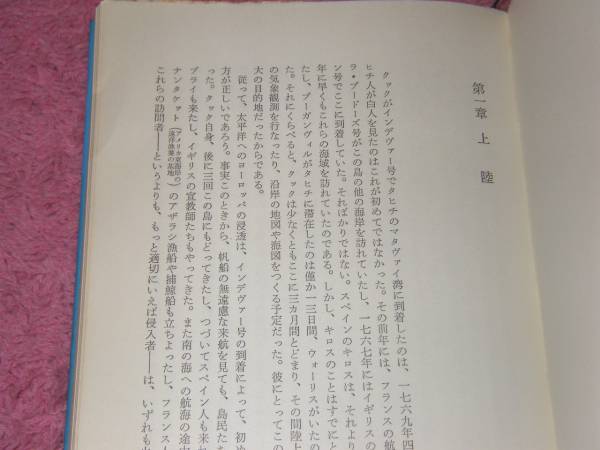 第一章 上陸
クックがインデヴァー号でタヒチのマタヴァイ湾に到着したのは、一七六九年四
ヒチ人が白人を見たのはこれが初めてではなかった。その前年には、フランスの航
ラ・ブードーズ号がこの島の他の海岸を訪れていたし、一七六七年にはイギリスの
ン号でここに到着していた。そればかりではない。スペインのキロスは、それより
年に早くもこれらの海域を訪れていたのである。しかし、キロスのことはすでにと
たし、ブーガンヴィルがタヒチに滞在したのは僅か一三日間、ウォーリスがいたの
た。それにくらべると、クックは少なくともここに三カ月間とどまり、その間陸上
の気象観測を行なったり、沿岸の地図や海図をつくる予定だった。彼にとってこの
大の目的地だったからである。
従って、太平洋へのヨーロッパの浸透は、インデヴァー号の到着によって、初め
方が正しいであろう。事実このときから、帆船の無遠慮な来航を見ても、島民たち
った。クック自身、後に三回この島にもどってきたし、つづいてスペイン人も来れ
ブライも来たし、イギリスの宣教師たちもやってきた。また南の海への航海の途中
ナンタケット(アメリカ東海岸の遠洋漁業の基地)のアザラシ漁船や捕鯨船も立ちよったし、フランス
これらの訪問者――というよりも、もっと適切にいえば侵入者――は、いずれも